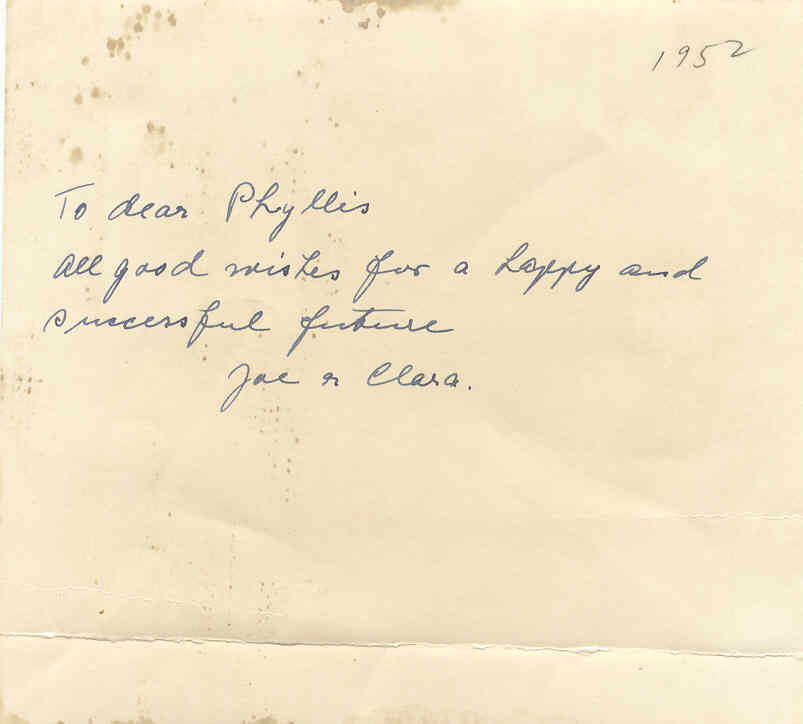 1952
To dear Phyllis
All good wishes for a happy and
successful future
Joe & Clara.